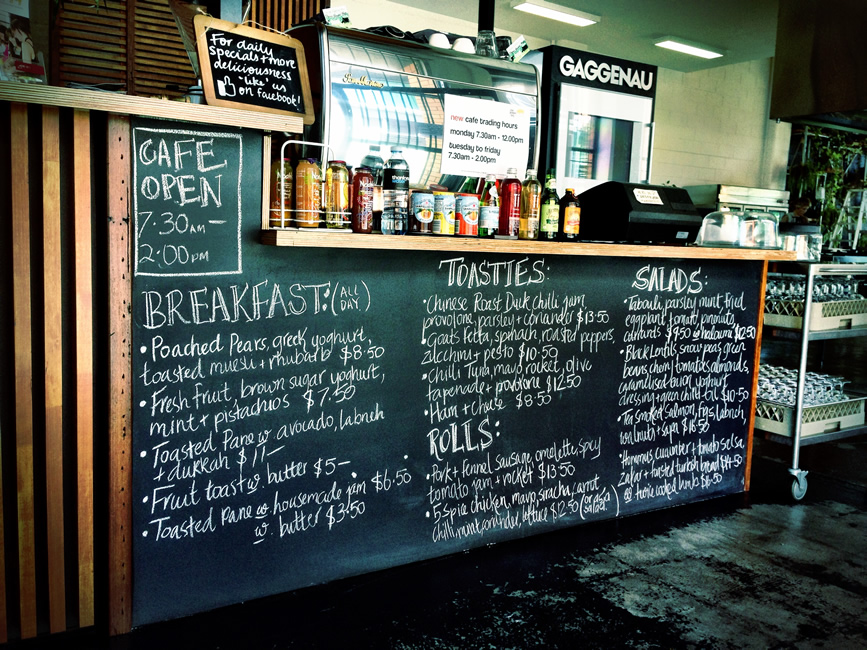 For daily
specials + more
deliciousness
'like' us
on facebook!
GAGGENAU
new cafe trading hours
monday 7.30am - 12.00pm
tuesday to friday
7.30am - 2.00pm
CAFE
OPEN
7:30AM —
2:00PM
BREAKFAST: (ALL DAY)
• Poached Pears, greek yoghurt,
toasted muesli + rhubarb $8.50
• Fresh Fruit, brown sugar yoghurt,
mint + pistachios $7.50
• Toasted Pane w. avocado, labneh
+ dukkah $11—
• Fruit toast w butter $5—
• Toasted Pane w. housemade jam $6.50
w. butter $3.50
TOASTIES:
• Chinese Roast Duck, chilli jam
provolone, parsley + coriander $13.50
• Goats Fetta, spinach, roasted peppers,
zucchini + pesto $10.50
• Chilli Tuna, mayo, rocket, olive
tapenade + provolone $12.50
• Ham + cheese $8.50
ROLLS:
• Pork + Fennel Sausage, omelette, spicy
tomato jam + rocket $13.50
• 5 Spice chicken, mayo, siracha, carrot
chilli, mint, coriander, lettuce $12.50 (or as a salad)
SALADS:
• Tabouli, parsley, mint, fried
eggplant + tomato, pinenuts,
currants $9.50 w haloumi $12.50
• Black Lentils, snow peas, green
beans, cherry tomatoes, almonds,
caramelised onion, yoghurt
dressing + green chilli oil $10.50
• Tea smoked Salmon, figs, labneh,
• Hommus, cucumber + tomato salsa,
Zaatar + toasted turkish bread $14.50